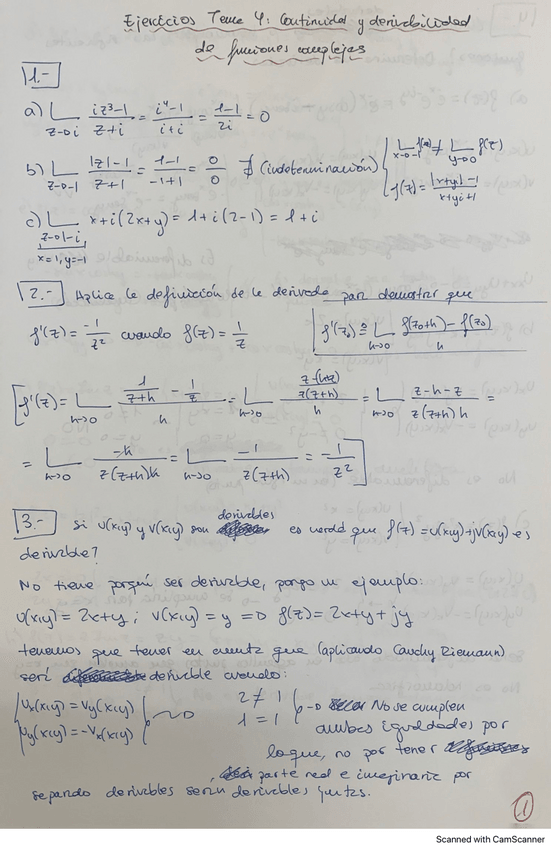 Ejercicios Tema 4: Continuidad y derivabilidad
de funciones complejas
1.-
a) L z→i (iz³-1)/(z+i) = (i⁴-1)/(i+i) = (1-1)/2i = 0
b) L z→-1 (|z|-1)/(z+1) = (1-1)/(-1+1) = 0/0 ∄ (indeterminación) { L x→-1 f(z) ≠ L y→0 f(z)
f(z) = (|x+yi|-1)/(x+yi+1)
c) L z→1-i x+i(2x+y) = 1+i(2-1) = 1+i
x=1, y=-1
2.- Aplica la definición de la derivada para demostrar que
f'(z) = -1/z² cuando f(z) = 1/z f'(z₀) ≙ L h→0 (f(z₀+h)-f(z₀))/h
[f'(z) = L h→0 (1/(z+h) - 1/z)/h = L h→0 ((z-(h+z))/(z(z+h)))/h = L h→0 (z-h-z)/(z(z+h)h) =
= L h→0 -h/(z(z+h)h) = L h→0 -1/(z(z+h)) = -1/z²]
3.- Si u(x,y) y v(x,y) son derivables es verdad que f(z) = u(x,y)+jv(x,y) es
derivable?
No tiene porqué ser derivable, pongo un ejemplo:
u(x,y) = 2x+y ; v(x,y) = y ⇒ f(z) = 2x+y+jy
tenemos que tener en cuenta que (aplicando Cauchy Riemann)
será derivable cuando:
{ux(x,y) = vy(x,y) 2 ≠ 1 → No se cumplen
uy(x,y) = -vx(x,y)} → 1 = 1 ambas igualdades por
lo que, no por tener
, parte real e imaginaria por
separado derivables serán derivables juntas.
1
Scanned with CamScanner